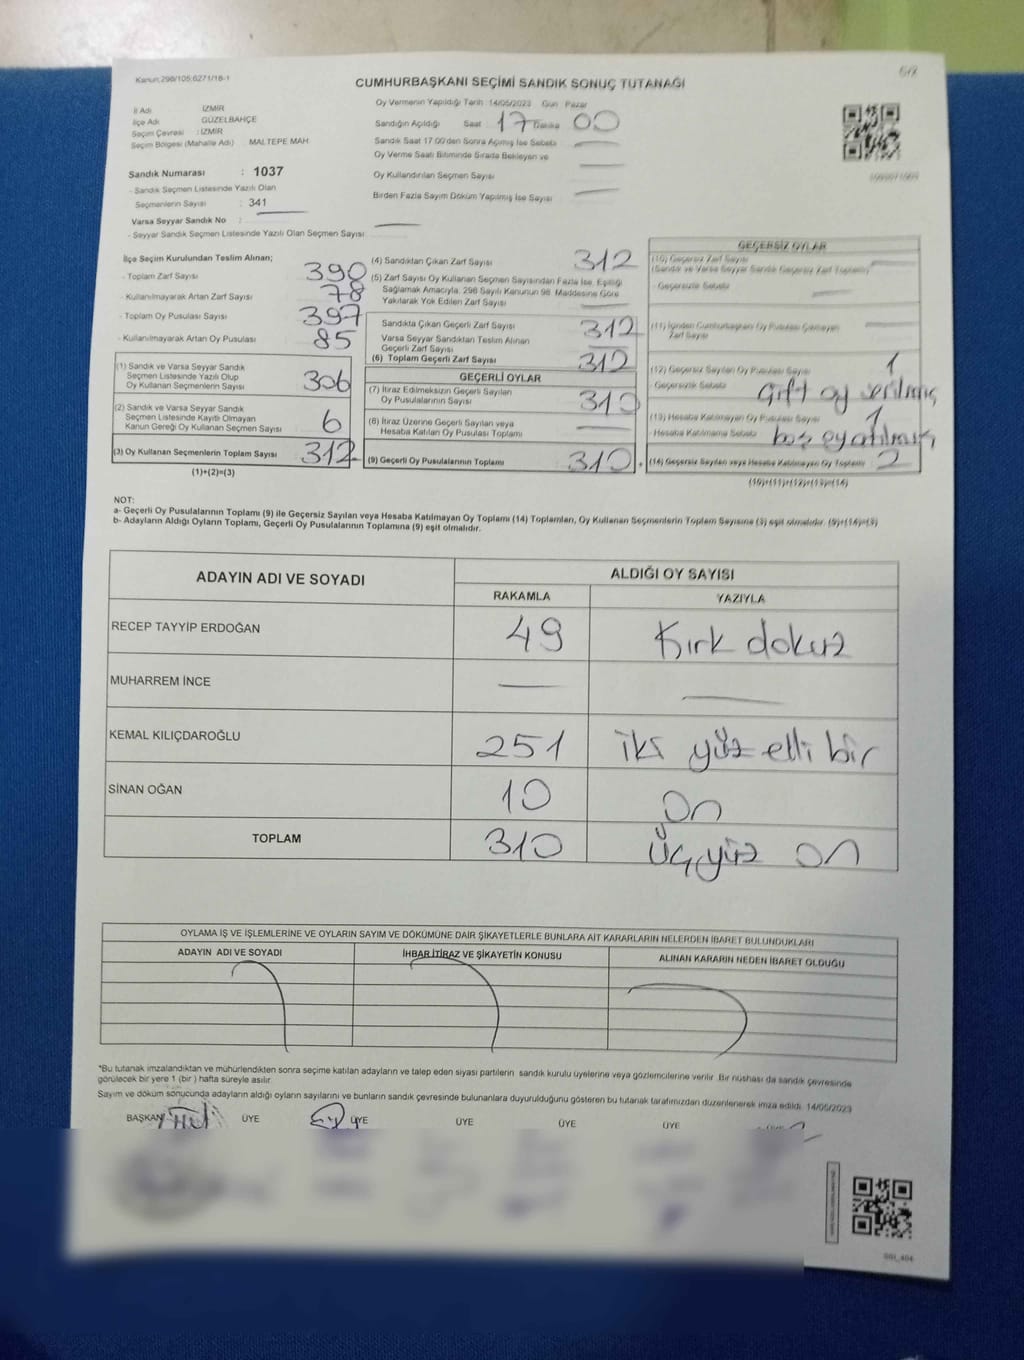 Kanun:298/105;6271/18-1
CUMHURBAŞKANI SEÇİMİ SANDIK SONUÇ TUTANAĞI
İl Adı İZMİR
İlçe Adı GÜZELBAHÇE
Seçim Çevresi : İZMİR
Seçim Bölgesi (Mahalle Adı) MALTEPE MAH.
Oy Vermenin Yapıldığı Tarih :14/05/2023 Gün Pazar
Sandığın Açıldığı Saat : 17 Dakika 00
Sandık Saat 17:00'den Sonra Açılmış İse Sebebi
Oy Verme Saati Bitiminde Sırada Bekleyen ve
Oy Kullandırılan Seçmen Sayısı
Birden Fazla Sayım Döküm Yapılmış İse Sayısı
Sandık Numarası : 1037
- Sandık Seçmen Listesinde Yazılı Olan
Seçmenlerin Sayısı : 341
Varsa Seyyar Sandık No :
- Seyyar Sandık Seçmen Listesinde Yazılı Olan Seçmen Sayısı
İlçe Seçim Kurulundan Teslim Alınan;
- Toplam Zarf Sayısı 390
- Kullanılmayarak Artan Zarf Sayısı 78
- Toplam Oy Pusulası Sayısı 397
- Kullanılmayarak Artan Oy Pusulası 85
(1) Sandık ve Varsa Seyyar Sandık
Seçmen Listesinde Yazılı Olup
Oy Kullanan Seçmenlerin Sayısı 306
(2) Sandık ve Varsa Seyyar Sandık
Seçmen Listesinde Kayıtlı Olmayan
Kanun Gereği Oy Kullanan Seçmen Sayısı 6
(3) Oy Kullanan Seçmenlerin Toplam Sayısı 312
(1)+(2)=(3)
(4) Sandıktan Çıkan Zarf Sayısı 312
(5) Zarf Sayısı Oy Kullanan Seçmen Sayısından Fazla İse, Eşitliği
Sağlamak Amacıyla, 298 Sayılı Kanunun 98. Maddesine Göre
Yakılarak Yok Edilen Zarf Sayısı
Sandıkta Çıkan Geçerli Zarf Sayısı 312
Varsa Seyyar Sandıktan Teslim Alınan
Geçerli Zarf Sayısı
(6) Toplam Geçerli Zarf Sayısı 312
GEÇERLİ OYLAR
(7) İtiraz Edilmeksizin Geçerli Sayılan
Oy Pusulalarının Sayısı 310
(8) İtiraz Üzerine Geçerli Sayılan veya
Hesaba Katılan Oy Pusulası Toplamı
(9) Geçerli Oy Pusulalarının Toplamı 310
GEÇERSİZ OYLAR
(10) Geçersiz Zarf Sayısı
(Sandık ve Varsa Seyyar Sandık Geçersiz Zarf Toplamı)
- Geçersizlik Sebebi
(11) İçinden Cumhurbaşkanı Oy Pusulası Çıkmayan
Zarf Sayısı
(12) Geçersiz Sayılan Oy Pusulası Sayısı 1
- Geçersizlik Sebebi Çift oy verilmiş
(13) Hesaba Katılmayan Oy Pusulası Sayısı 1
- Hesaba Katılmama Sebebi boş oy atılmış
(14) Geçersiz Sayılan veya Hesaba Katılmayan Oy Toplamı 2
(10)+(11)+(12)+(13)=(14)
NOT:
a- Geçerli Oy Pusulalarının Toplamı (9) ile Geçersiz Sayılan veya Hesaba Katılmayan Oy Toplamı (14) Toplamları, Oy Kullanan Seçmenlerin Toplam Sayısına (3) eşit olmalıdır. (9)+(14)=(3)
b- Adayların Aldığı Oyların Toplamı, Geçerli Oy Pusulalarının Toplamına (9) eşit olmalıdır.
ADAYIN ADI VE SOYADI ALDIĞI OY SAYISI
RAKAMLA YAZIYLA
RECEP TAYYİP ERDOĞAN 49 Kırk dokuz
MUHARREM İNCE
KEMAL KILIÇDAROĞLU 251 iki yüz elli bir
SİNAN OĞAN 10 On
TOPLAM 310 Üçyüz on
OYLAMA İŞ VE İŞLEMLERİNE VE OYLARIN SAYIM VE DÖKÜMÜNE DAİR ŞİKAYETLERLE BUNLARA AİT KARARLARIN NELERDEN İBARET BULUNDUKLARI
ADAYIN ADI VE SOYADI İHBAR,İTİRAZ VE ŞİKAYETİN KONUSU ALINAN KARARIN NEDEN İBARET OLDUĞU
*Bu tutanak imzalandıktan ve mühürlendikten sonra seçime katılan adayların ve talep eden siyasi partilerin sandık kurulu üyelerine veya gözlemcilerine verilir. Bir nüshası da sandık çevresinde
görülecek bir yere 1 (bir) hafta süreyle asılır.
Sayım ve döküm sonucunda adayların aldığı oyların sayılarını ve bunların sandık çevresinde bulunanlara duyurulduğunu gösteren bu tutanak tarafımızdan düzenlenerek imza edildi. 14/05/2023
BAŞKAN ÜYE ÜYE ÜYE ÜYE ÜYE